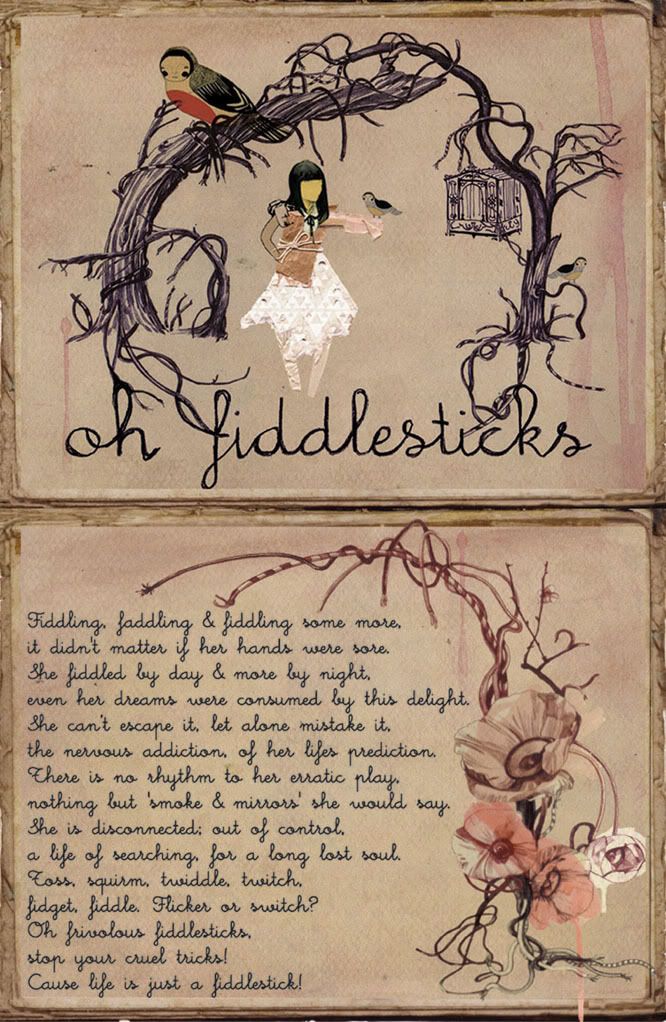 oh fiddlesticks
Fiddling, faddling & fiddling some more,
it didn't matter if her hands were sore.
She fiddled by day & more by night,
even her dreams were consumed by this delight.
She can't escape it, let alone mistake it,
the nervous addiction, of her lifes prediction.
There is no rhythm to her erratic play,
nothing but 'smoke & mirrors' she would say.
She is disconnected; out of control,
a life of searching, for a long lost soul.
Toss, squirm, twiddle, twitch,
fidget, fiddle. Flicker or switch?
Oh frivolous fiddlesticks,
stop your cruel tricks!
Cause life is just a fiddlestick!